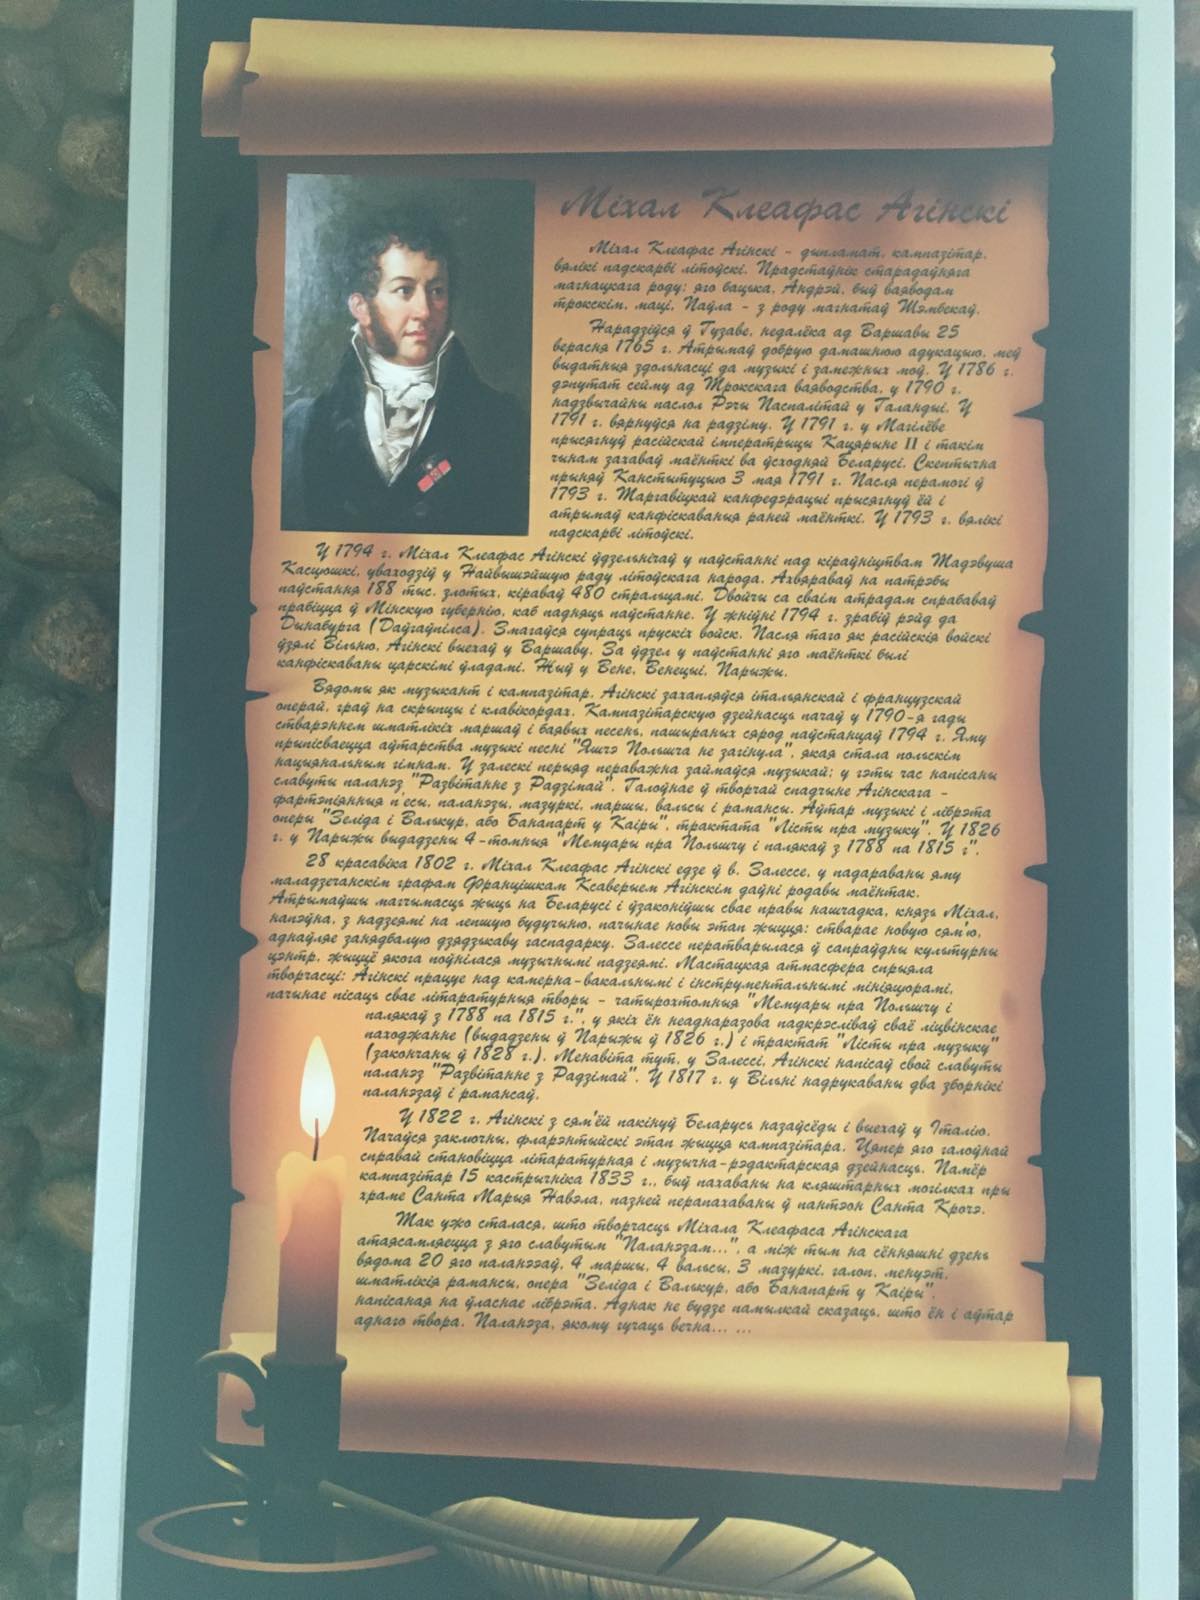 Міхал Клеафас Агінскі
Міхал Клеафас Агінскі - дыпламат, кампазітар,
вялікі падскарбі літоўскі. Прадстаўнік старадаўняга
магнацкага роду: яго бацька, Андрэй, быў ваяводам
трокскім, маці, Паўла - з роду магнатаў Шэмбекаў.
Нарадзіўся ў Гузаве, недалёка ад Варшавы 25
верасня 1765 г. Атрымаў добрую дамашнюю адукацыю, меў
выдатныя здольнасці да музыкі і замежных моў. У 1786 г.
дэпутат сейму ад Трокскага ваяводства, у 1790 г.
надзвычайны паслол Рэчы Паспалітай у Галандыі. У
1791 г. вярнуўся на радзіму. У 1791 г. у Магілёве
прысягнуў расійскай імператрыцы Кацярыне II і такім
чынам захаваў маёнткі ва ўсходняй Беларусі. Скептычна
прыняў Канстытуцыю 3 мая 1791 г. Пасля перамогі ў
1793 г. Таргавіцкай канфедэрацыі прысягнуў ёй і
атрымаў канфіскаваныя раней маёнткі. У 1793 г. вялікі
падскарбі літоўскі.
У 1794 г. Міхал Клеафас Агінскі ўдзельнічаў у паўстанні пад кіраўніцтвам Тадэвуша
Касцюшкі, уваходзіў у Найвышэйшую раду літоўскага народа. Ахвяраваў на патрэбы
паўстання 188 тыс. злотых, кіраваў 480 стральцамі. Двойчы са сваім атрадам спрабаваў
прабіцца ў Мінскую губернію, каб падняць паўстанне. У жніўні 1794 г. зрабіў рэйд да
Дынабурга (Даўгаўпілса). Змагаўся супраць прускіх войск. Пасля таго як расійскія войскі
ўзялі Вільню, Агінскі выехаў у Варшаву. За ўдзел у паўстанні яго маёнткі былі
канфіскаваны царскімі ўладамі. Жыў у Вене, Венецыі, Парыжы.
Вядомы як музыкант і кампазітар. Агінскі захапляўся італьянскай і французскай
операй, граў на скрыпцы і клавікордах. Кампазітарскую дзейнасць пачаў у 1790-я гады
стварэннем шматлікіх маршаў і баявых песень, пашыраных сярод паўстанцаў 1794 г. Яму
прыпісваецца аўтарства музыкі песні "Яшчэ Польшча не загінула", якая стала польскім
нацыянальным гімнам. У залескі перыяд пераважна займаўся музыкай: у гэты час напісаны
славуты паланэз "Развітанне з Радзімай". Галоўнае ў творчай спадчыне Агінскага -
фартэпіянныя п'есы, паланэзы, мазуркі, маршы, вальсы і рамансы. Аўтар музыкі і лібрэта
оперы "Зеліда і Валькур, або Банапарт у Каіры", трактата "Лісты пра музыку". У 1826
г. у Парыжы выдадзены 4-томныя "Мемуары пра Польшчу і палякаў з 1788 па 1815 г".
28 красавіка 1802 г. Міхал Клеафас Агінскі едзе ў в. Залессе, у падараваны яму
маладзечанскім графам Францішкам Ксаверыем Агінскім даўні родавы маёнтак.
Атрымаўшы магчымасць жыць на Беларусі і ўзаконіўшы свае правы нашчадка, князь Міхал,
напэўна, з надзеямі на лепшую будучыню, пачынае новы этап жыцця: стварае новую сям'ю,
аднаўляе занядбалую дзядзькаву гаспадарку. Залессе ператварылася ў сапраўдны культурны
цэнтр, жыццё якога поўнілася музычнымі падзеямі. Мастацкая атмасфера спрыяла
творчасці: Агінскі працуе над камерна-вакальнымі і інструментальнымі мініяцюрамі,
пачынае пісаць свае літаратурныя творы - чатырохтомныя "Мемуары пра Польшчу і
палякаў з 1788 па 1815 г.", у якіх ён неаднаразова падкрэсліваў сваё ліцвінскае
паходжанне (выдадзены ў Парыжы ў 1826 г.) і трактат "Лісты пра музыку"
(закончаны ў 1828 г.). Менавіта тут, у Залессі, Агінскі напісаў свой славуты
паланэз "Развітанне з Радзімай". У 1817 г. у Вільні надрукаваны два зборнікі
паланэзаў і рамансаў.
У 1822 г. Агінскі з сям'ёй пакінуў Беларусь назаўсёды і выехаў у Італію.
Пачаўся заключны, фларэнтыйскі этап жыцця кампазітара. Цяпер яго галоўнай
справай становіцца літаратурная і музычна-рэдактарская дзейнасць. Памёр
кампазітар 15 кастрычніка 1833 г., быў пахаваны на кляштарных могілках пры
храме Санта Марыя Навэла, пазней перапахаваны ў пантэон Санта Крочэ.
Так ужо сталася, што творчасць Міхала Клеафаса Агінскага
атаясамляецца з яго славутым "Паланэзам...", а між тым на сённяшні дзень
вядома 20 яго паланэзаў, 4 маршы, 4 вальсы, 3 мазуркі, галоп, менуэт,
шматлікія рамансы, опера "Зеліда і Валькур, або Банапарт у Каіры",
напісаная на ўласнае лібрэта. Аднак не будзе памылкай сказаць, што ён і аўтар
аднаго твора. Паланэза, якому гучаць вечна... ...